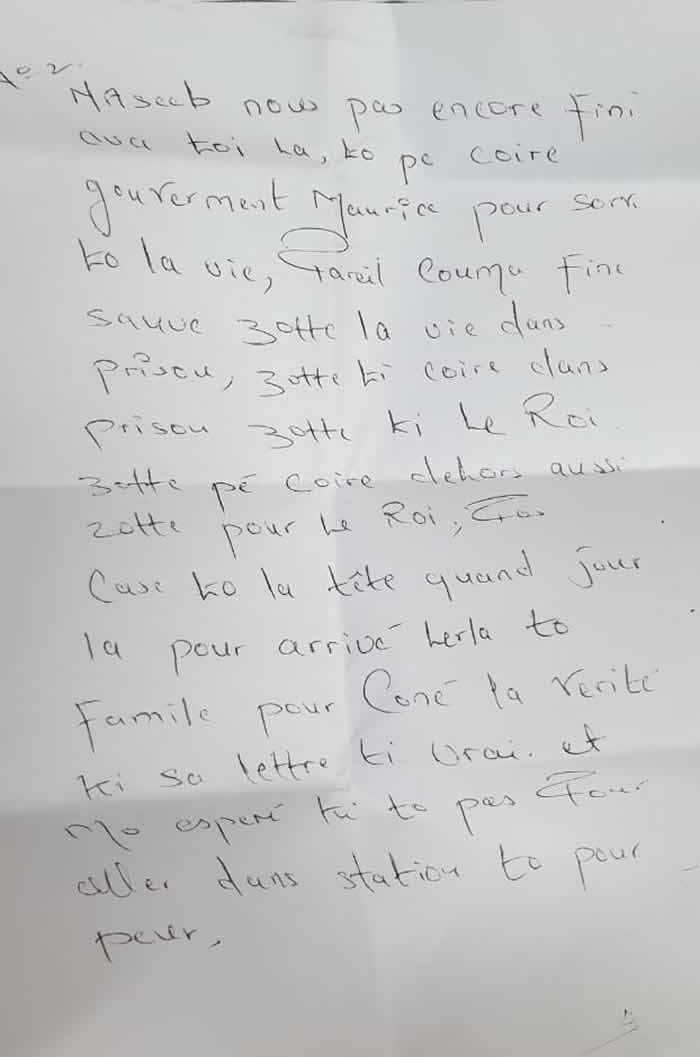 No 2.
NAseeb nous pas encore fini
ava toi la, to pe coire
gouverment Maurice pour sorr.
to la vie, Pareil Couma fine
sauve zotte la vie dans
prison, zotte ti coire dans
prison zotte ki Le Roi.
zotte pé coire dehors aussi
zotte pour Le Roi, Pas
Case to la tête quand jour
la pour arrivé Lerla to
Famile pour Coné la verité
ki sa lettre ti vrai. et
Mo esperé ki to pas Pour
aller dans station to pour
peur,